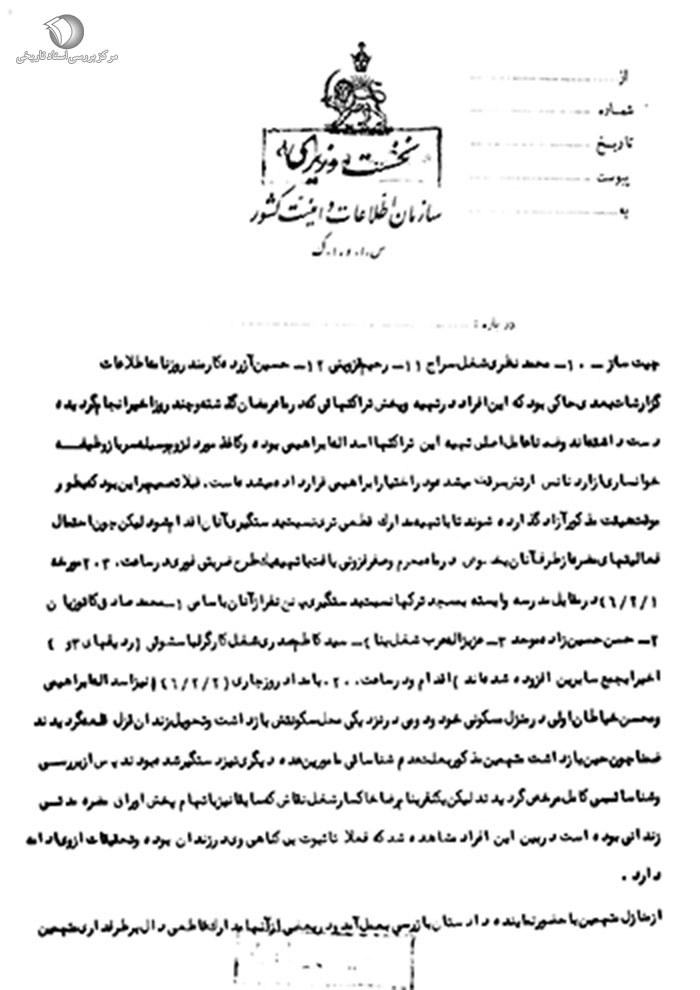 مرکز بررسی اسناد تاریخی
از
شماره
تاریخ
پیوست
به
نخست وزیری
سازمان اطلاعات و امنیت کشور
س.ا.و.ا.ک
درباره:
چیت ساز - ۱۰- محمد نظری شغل سراج ۱۱- رحیم قزوینی ۱۲- حسین آزرده کارمند روزنامه اطلاعات
گزارشات بعدی حاکی بود که این افراد در تهیه و پخش تراکتهائی که در ماه رمضان گذشته و چند روز اخیر انجام گردیده
دست داشته‌اند وضمنا عامل اصلی تهیه این تراکتها اسداله ابراهیمی بوده و کاغذ مورد لزوم بوسیله سرباز وظیفه
خوانساری از اداره ارتش سرقت میشد و در اختیار ابراهیمی قرار داده میشده است. قبلا تصمیم براین بود که بطور
موقت هیئت مذکور آزاد گذارده شوند تا با تهیه مدارك قطعی تری نسبت بدستگیری آنان اقدام شود لیکن چون احتمال
فعالیتهای مضره از طرف آنان بخصوص در ماه محرم وصفر فزونی یافت با تهیه یك طرح ضربتی فوری در ساعت ۲۰۳۰ مورخه
۴۶/۲/۱ در مقابل مدرسه وابسته بمسجد ترکها نسبت بدستگیری پنج نفر از آنان باسامی ۱- محمد صادق کاتوزیان
۲- حسن حسین زاده موحد ۳- عزیزاله عرب شغل بنا ۴- سید کاظم صدری شغل کارگر لباسشوئی (ردیفهای ۳ و ۴
اخیرا بجمع سایرین افزوده شده‌اند) اقدام ودر ساعت ۰۲۰۰ بامداد روز جاری (۴۶/۲/۲) نیز اسداله ابراهیمی
ومحسن خیاطان اولی در منزل مسکونی خود ودومی در نزدیکی محل سکونتش بازداشت وتحویل زندان قزل قلعه گردیدند
ضمنا چون حین بازداشت متهمین مذکور بعلت عدم شناسائی مامورین عده دیگری نیز دستگیر شده بودند پس از بررسی
وشناسائی کامل مرخص گردیدند لیکن یکنفر بنام رضا خاکسار شغل نقاش که سابقا نیز باتهام پخش اوراق مضره مدتی
زندانی بوده است در بین این افراد مشاهده شد که فعلا تا ثبوت بی گناهی وی در زندان بوده وتحقیقات از وی ادامه
دارد.
از منازل متهمین با حضور نماینده دادستان بازرسی بعمل آمد ودر بعضی از آنها مدارك قاطعی دال بر طرفداری متهمین